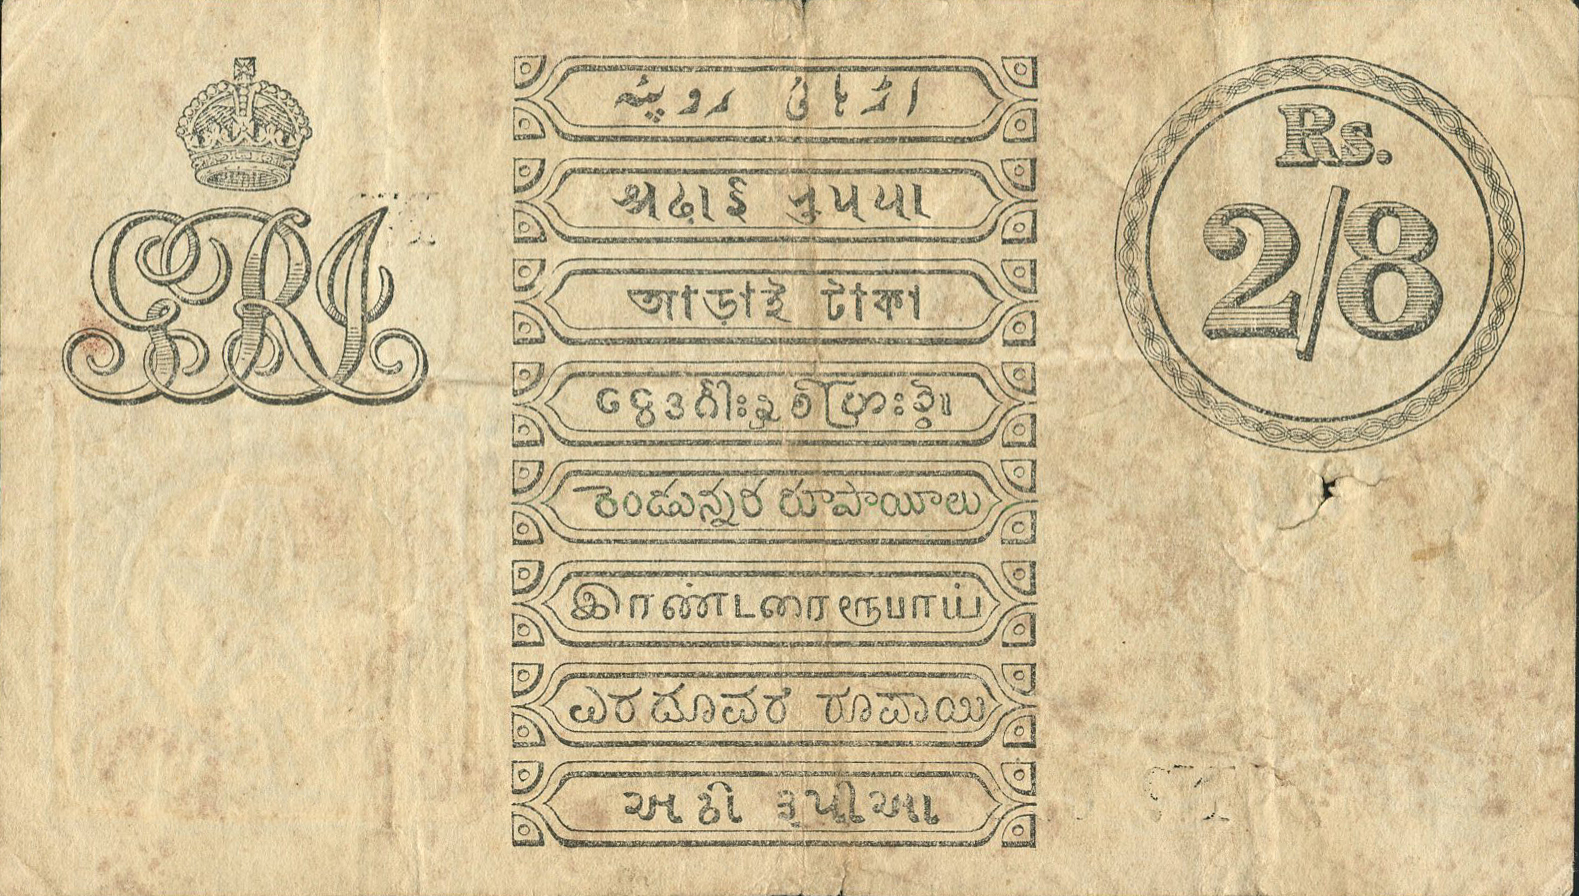 GRI
اڑہائی روپیہ
अढाई रुपया
আড়াই টাকা
రెండున్నర రూపాయీలు
இரண்டரை ரூபாய்
ಎರದೂವರೆ ರೂಪಾಯಿ
અઢી રૂપીઆ
Rs.
2/8